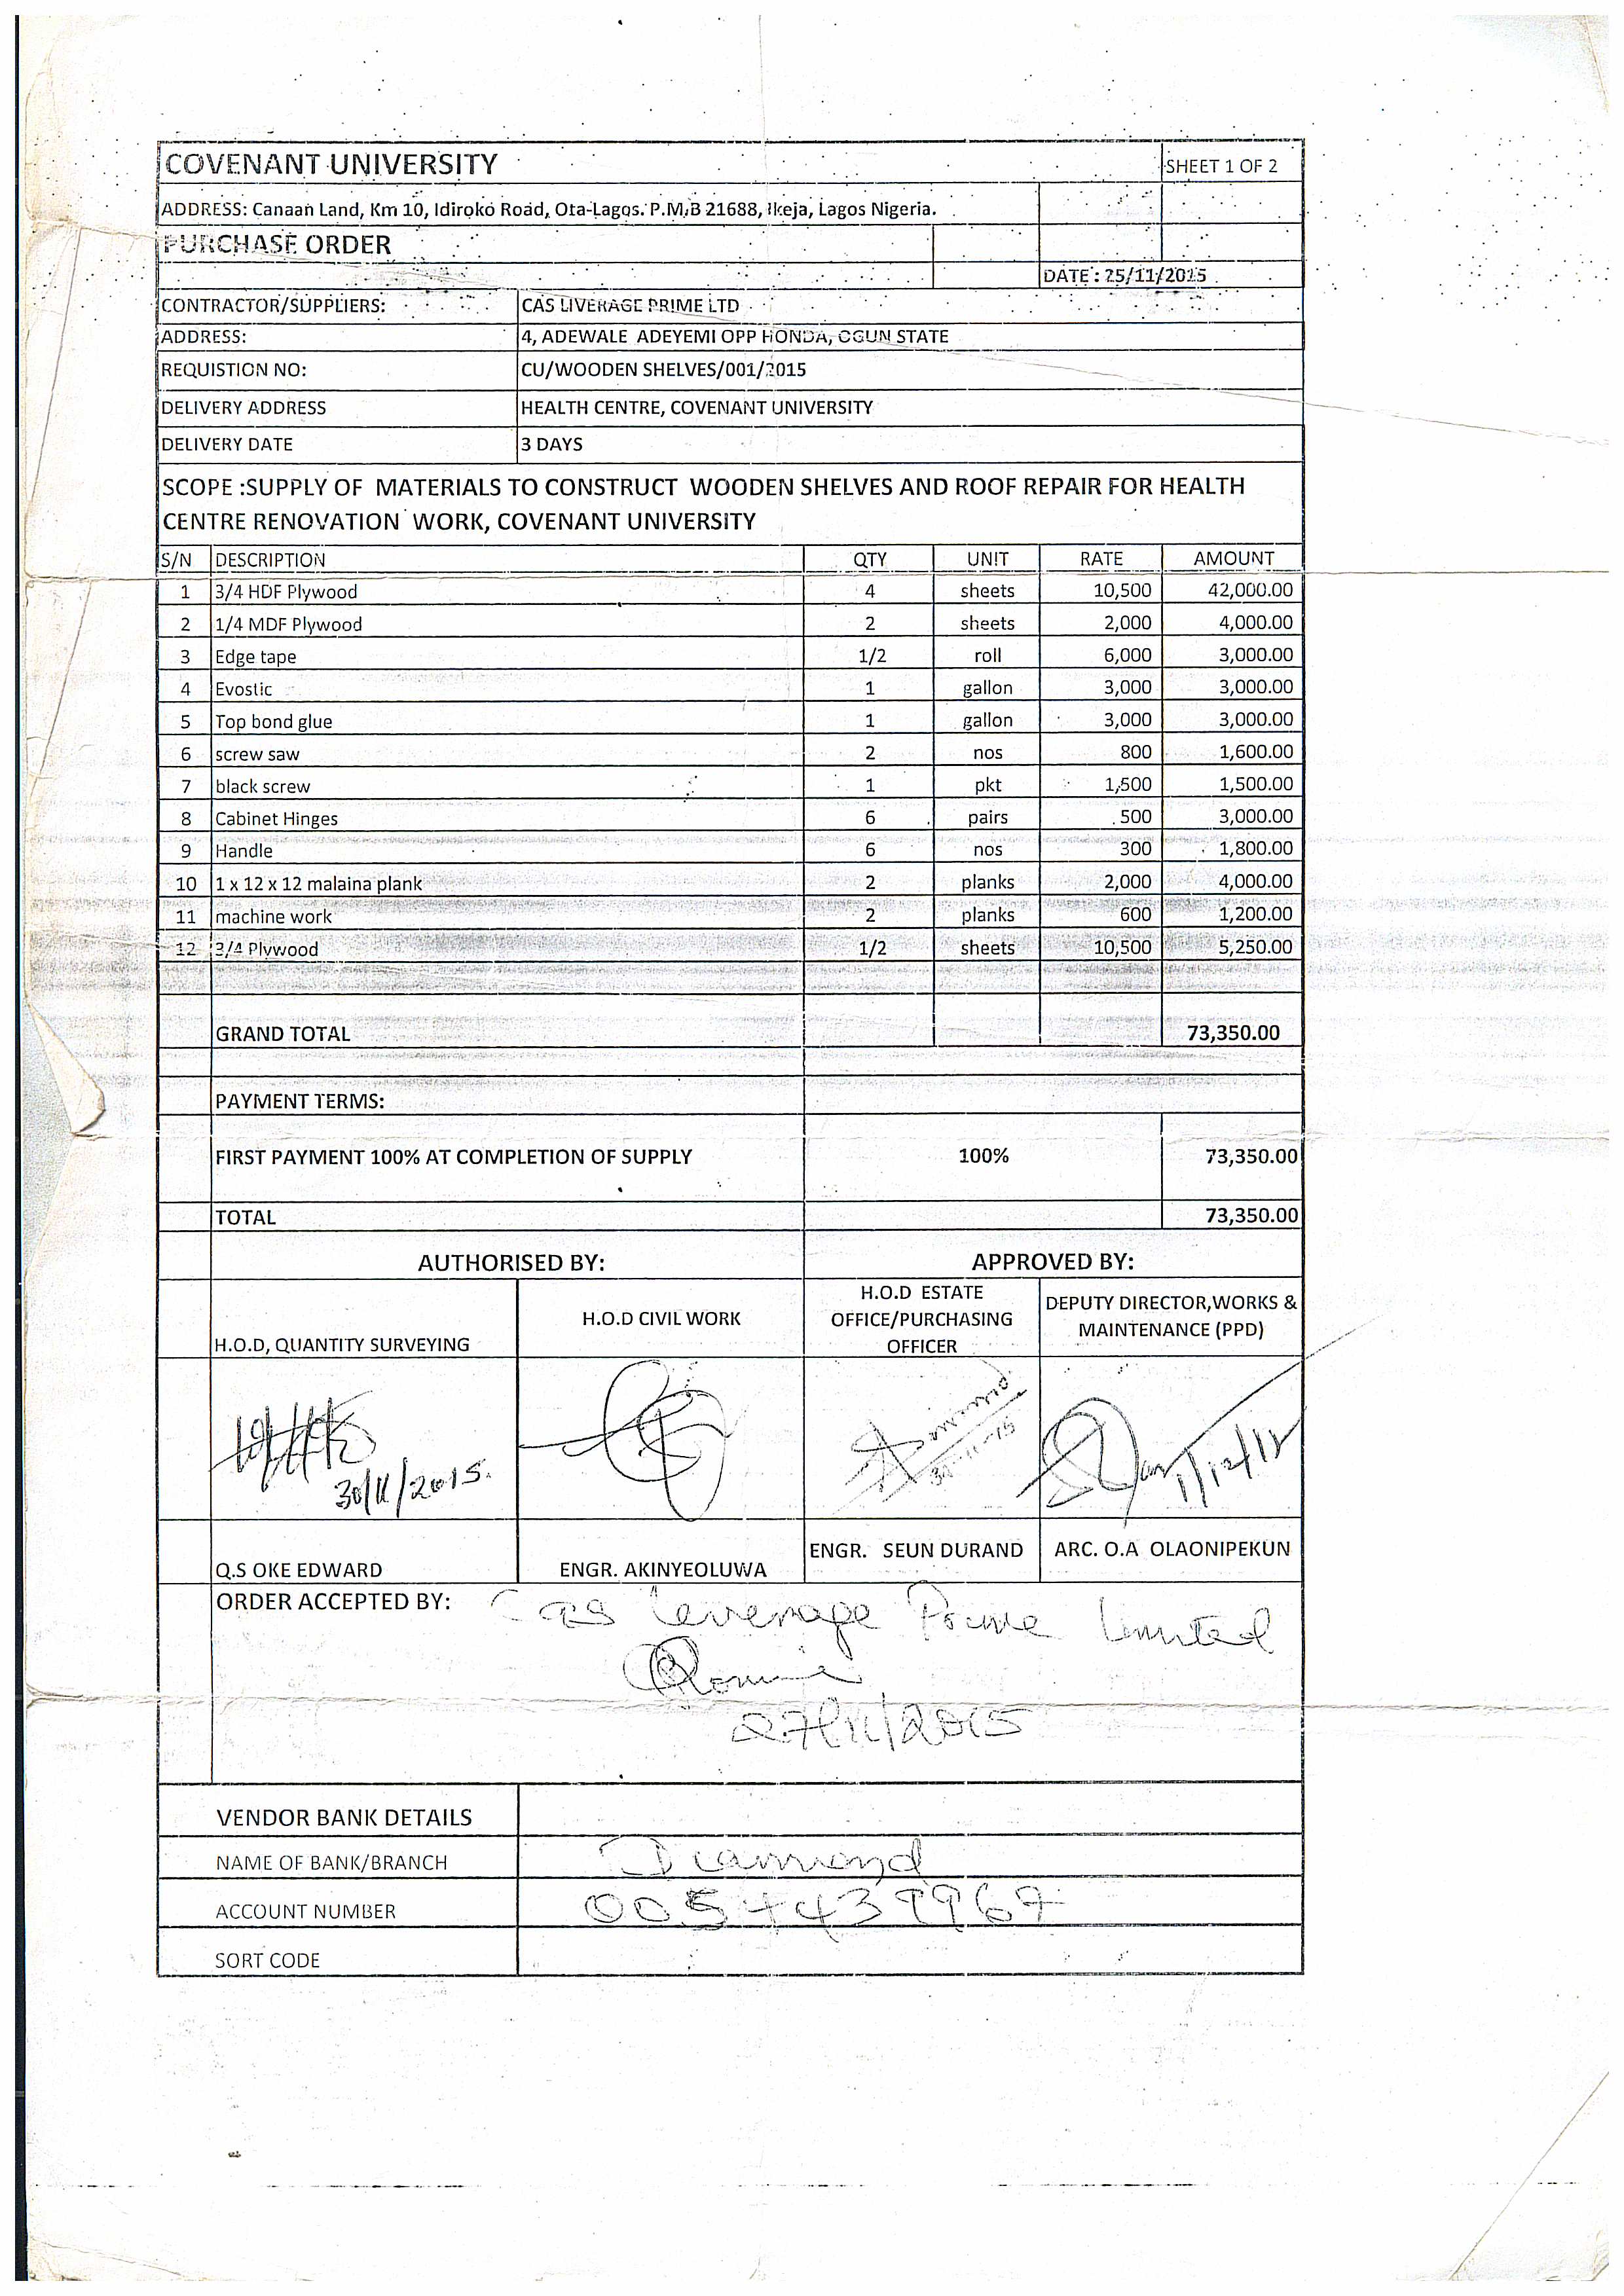 COVENANT UNIVERSITY SHEET 1 OF 2
ADDRESS: Canaan Land, Km 10, Idiroko Road, Ota-Lagos. P.M.B 21688, Ikeja, Lagos Nigeria.
PURCHASE ORDER
DATE : 25/11/2015
CONTRACTOR/SUPPLIERS: CAS LIVERAGE PRIME LTD
ADDRESS: 4, ADEWALE ADEYEMI OPP HONDA, OGUN STATE
REQUISTION NO: CU/WOODEN SHELVES/001/2015
DELIVERY ADDRESS HEALTH CENTRE, COVENANT UNIVERSITY
DELIVERY DATE 3 DAYS
SCOPE :SUPPLY OF MATERIALS TO CONSTRUCT WOODEN SHELVES AND ROOF REPAIR FOR HEALTH
CENTRE RENOVATION WORK, COVENANT UNIVERSITY
S/N DESCRIPTION QTY UNIT RATE AMOUNT
1 3/4 HDF Plywood 4 sheets 10,500 42,000.00
2 1/4 MDF Plywood 2 sheets 2,000 4,000.00
3 Edge tape 1/2 roll 6,000 3,000.00
4 Evostic 1 gallon 3,000 3,000.00
5 Top bond glue 1 gallon 3,000 3,000.00
6 screw saw 2 nos 800 1,600.00
7 black screw 1 pkt 1,500 1,500.00
8 Cabinet Hinges 6 pairs 500 3,000.00
9 Handle 6 nos 300 1,800.00
10 1 x 12 x 12 malaina plank 2 planks 2,000 4,000.00
11 machine work 2 planks 600 1,200.00
12 3/4 Plywood 1/2 sheets 10,500 5,250.00
GRAND TOTAL 73,350.00
PAYMENT TERMS:
FIRST PAYMENT 100% AT COMPLETION OF SUPPLY 100% 73,350.00
TOTAL 73,350.00
AUTHORISED BY: APPROVED BY:
H.O.D, QUANTITY SURVEYING
H.O.D CIVIL WORK
H.O.D ESTATE
OFFICE/PURCHASING
OFFICER
DEPUTY DIRECTOR,WORKS &
MAINTENANCE (PPD)
30/11/2015.
30-11-15
Q.S OKE EDWARD ENGR. AKINYEOLUWA ENGR. SEUN DURAND ARC. O.A OLAONIPEKUN
ORDER ACCEPTED BY: Cas leverage Prime Limited
27/11/2015
VENDOR BANK DETAILS
NAME OF BANK/BRANCH Diamond
ACCOUNT NUMBER 0054439967
SORT CODE